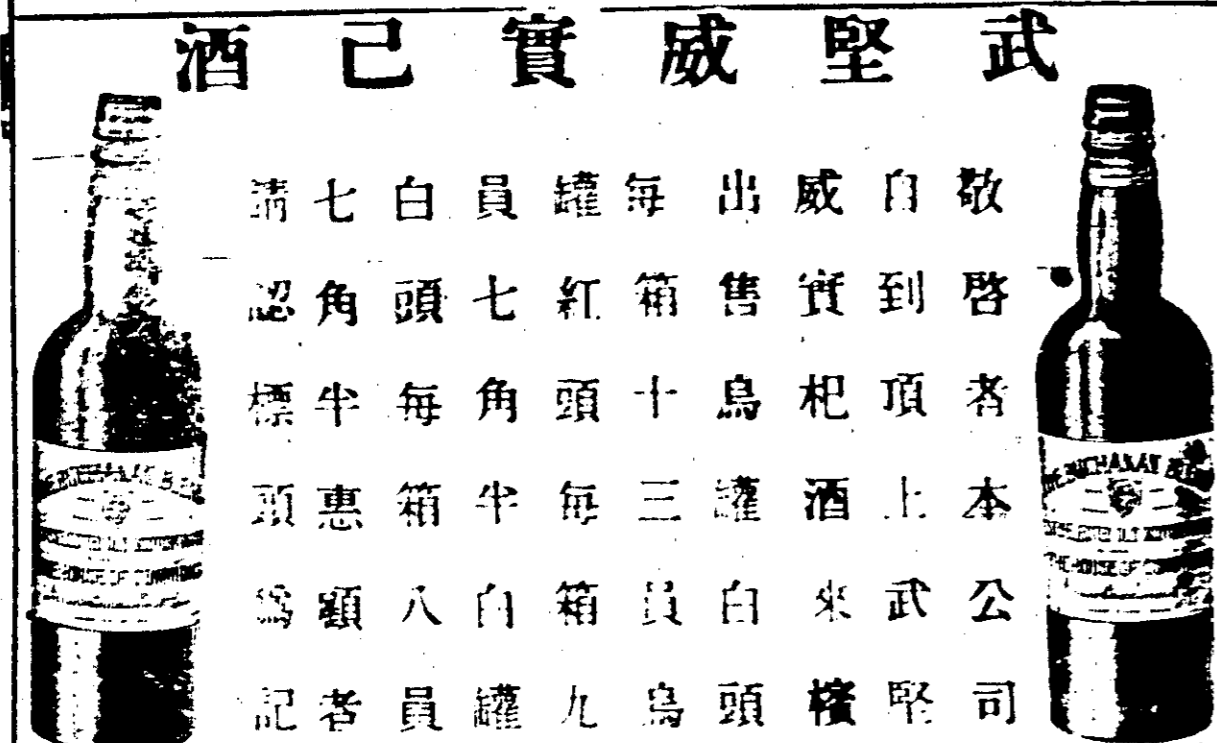 武堅威實己酒
敬啓者本公司
自到頂上武堅
威實杞酒來檳
出售烏罐白頭
每箱十三員烏
罐紅頭每箱九
員七角半白罐
白頭每箱八員
七角半惠顧者
請認標頭爲記
THE BUCHANAN BLEND
THE HOUSE OF
THE BUCHANAN BLEND
THE HOUSE OF